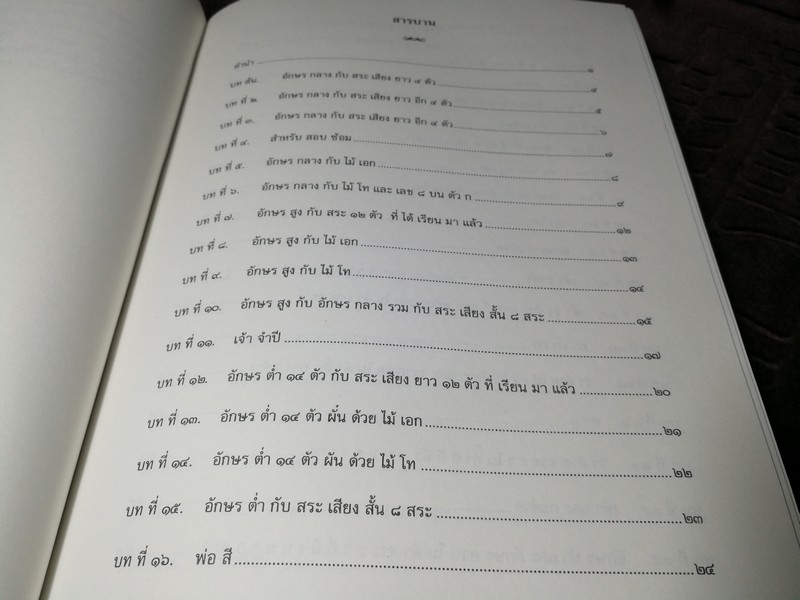 สารบาน
คำนำ ๑
บท ต้น. อักษร กลาง กับ สระ เสียง ยาว ๔ ตัว ๔
บท ที่ ๒. อักษร กลาง กับ สระ เสียง ยาว อีก ๔ ตัว ๕
บท ที่ ๓. อักษร กลาง กับ สระ เสียง ยาว อีก ๔ ตัว ๖
บท ที่ ๔. สำหรับ สอบ ซ้อม ๗
บท ที่ ๕. อักษร กลาง กับ ไม้ เอก ๘
บท ที่ ๖. อักษร กลาง กับ ไม้ โท และ เลข ๘ บน ตัว ก ๙
บท ที่ ๗. อักษร สูง กับ สระ ๑๒ ตัว ที่ ได้ เรียน มา แล้ว ๑๒
บท ที่ ๘. อักษร สูง กับ ไม้ เอก ๑๓
บท ที่ ๙. อักษร สูง กับ ไม้ โท ๑๔
บท ที่ ๑๐. อักษร สูง กับ อักษร กลาง รวม กับ สระ เสียง สั้น ๘ สระ ๑๕
บท ที่ ๑๑. เจ้า จำปี ๑๗
บท ที่ ๑๒. อักษร ต่ำ ๑๔ ตัว กับ สระ เสียง ยาว ๑๒ ตัว ที่ เรียน มา แล้ว ๒๐
บท ที่ ๑๓. อักษร ต่ำ ๑๔ ตัว ผั้น ด้วย ไม้ เอก ๒๑
บท ที่ ๑๔. อักษร ต่ำ ๑๔ ตัว ผัน ด้วย ไม้ โท ๒๒
บท ที่ ๑๕. อักษร ต่ำ กับ สระ เสียง สั้น ๘ สระ ๒๓
บท ที่ ๑๖. พ่อ สี ๒๔